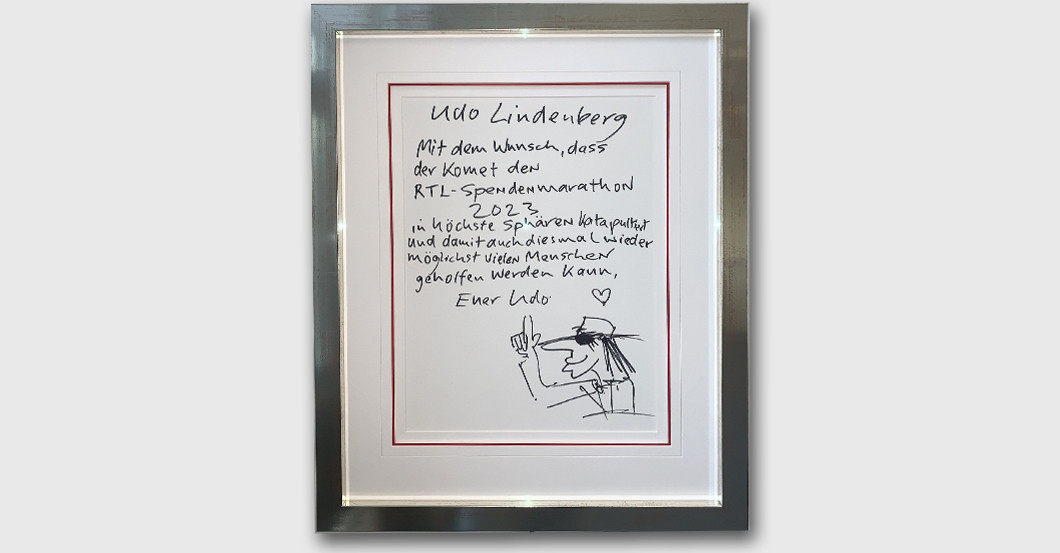 Udo Lindenberg
Mit dem Wunsch, dass
der Komet den
RTL-Spendenmarathon
2023
in höchste Sphären katapultiert
und damit auch diesmal wieder
möglichst vielen Menschen
geholfen werden kann,
Euer Udo